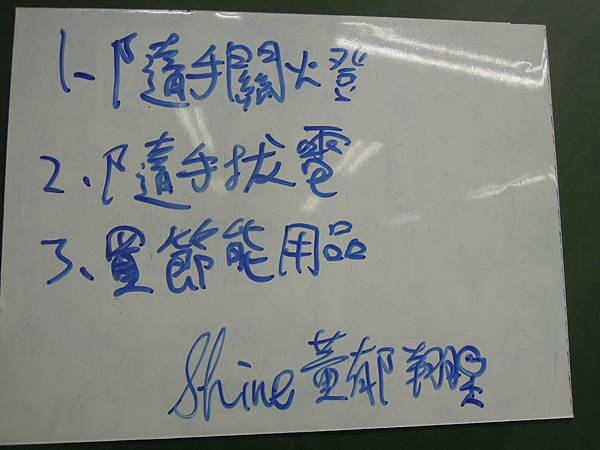 1、隨手關燈
2、隨手拔電
3、買節能用品
Shine 黃郁翔